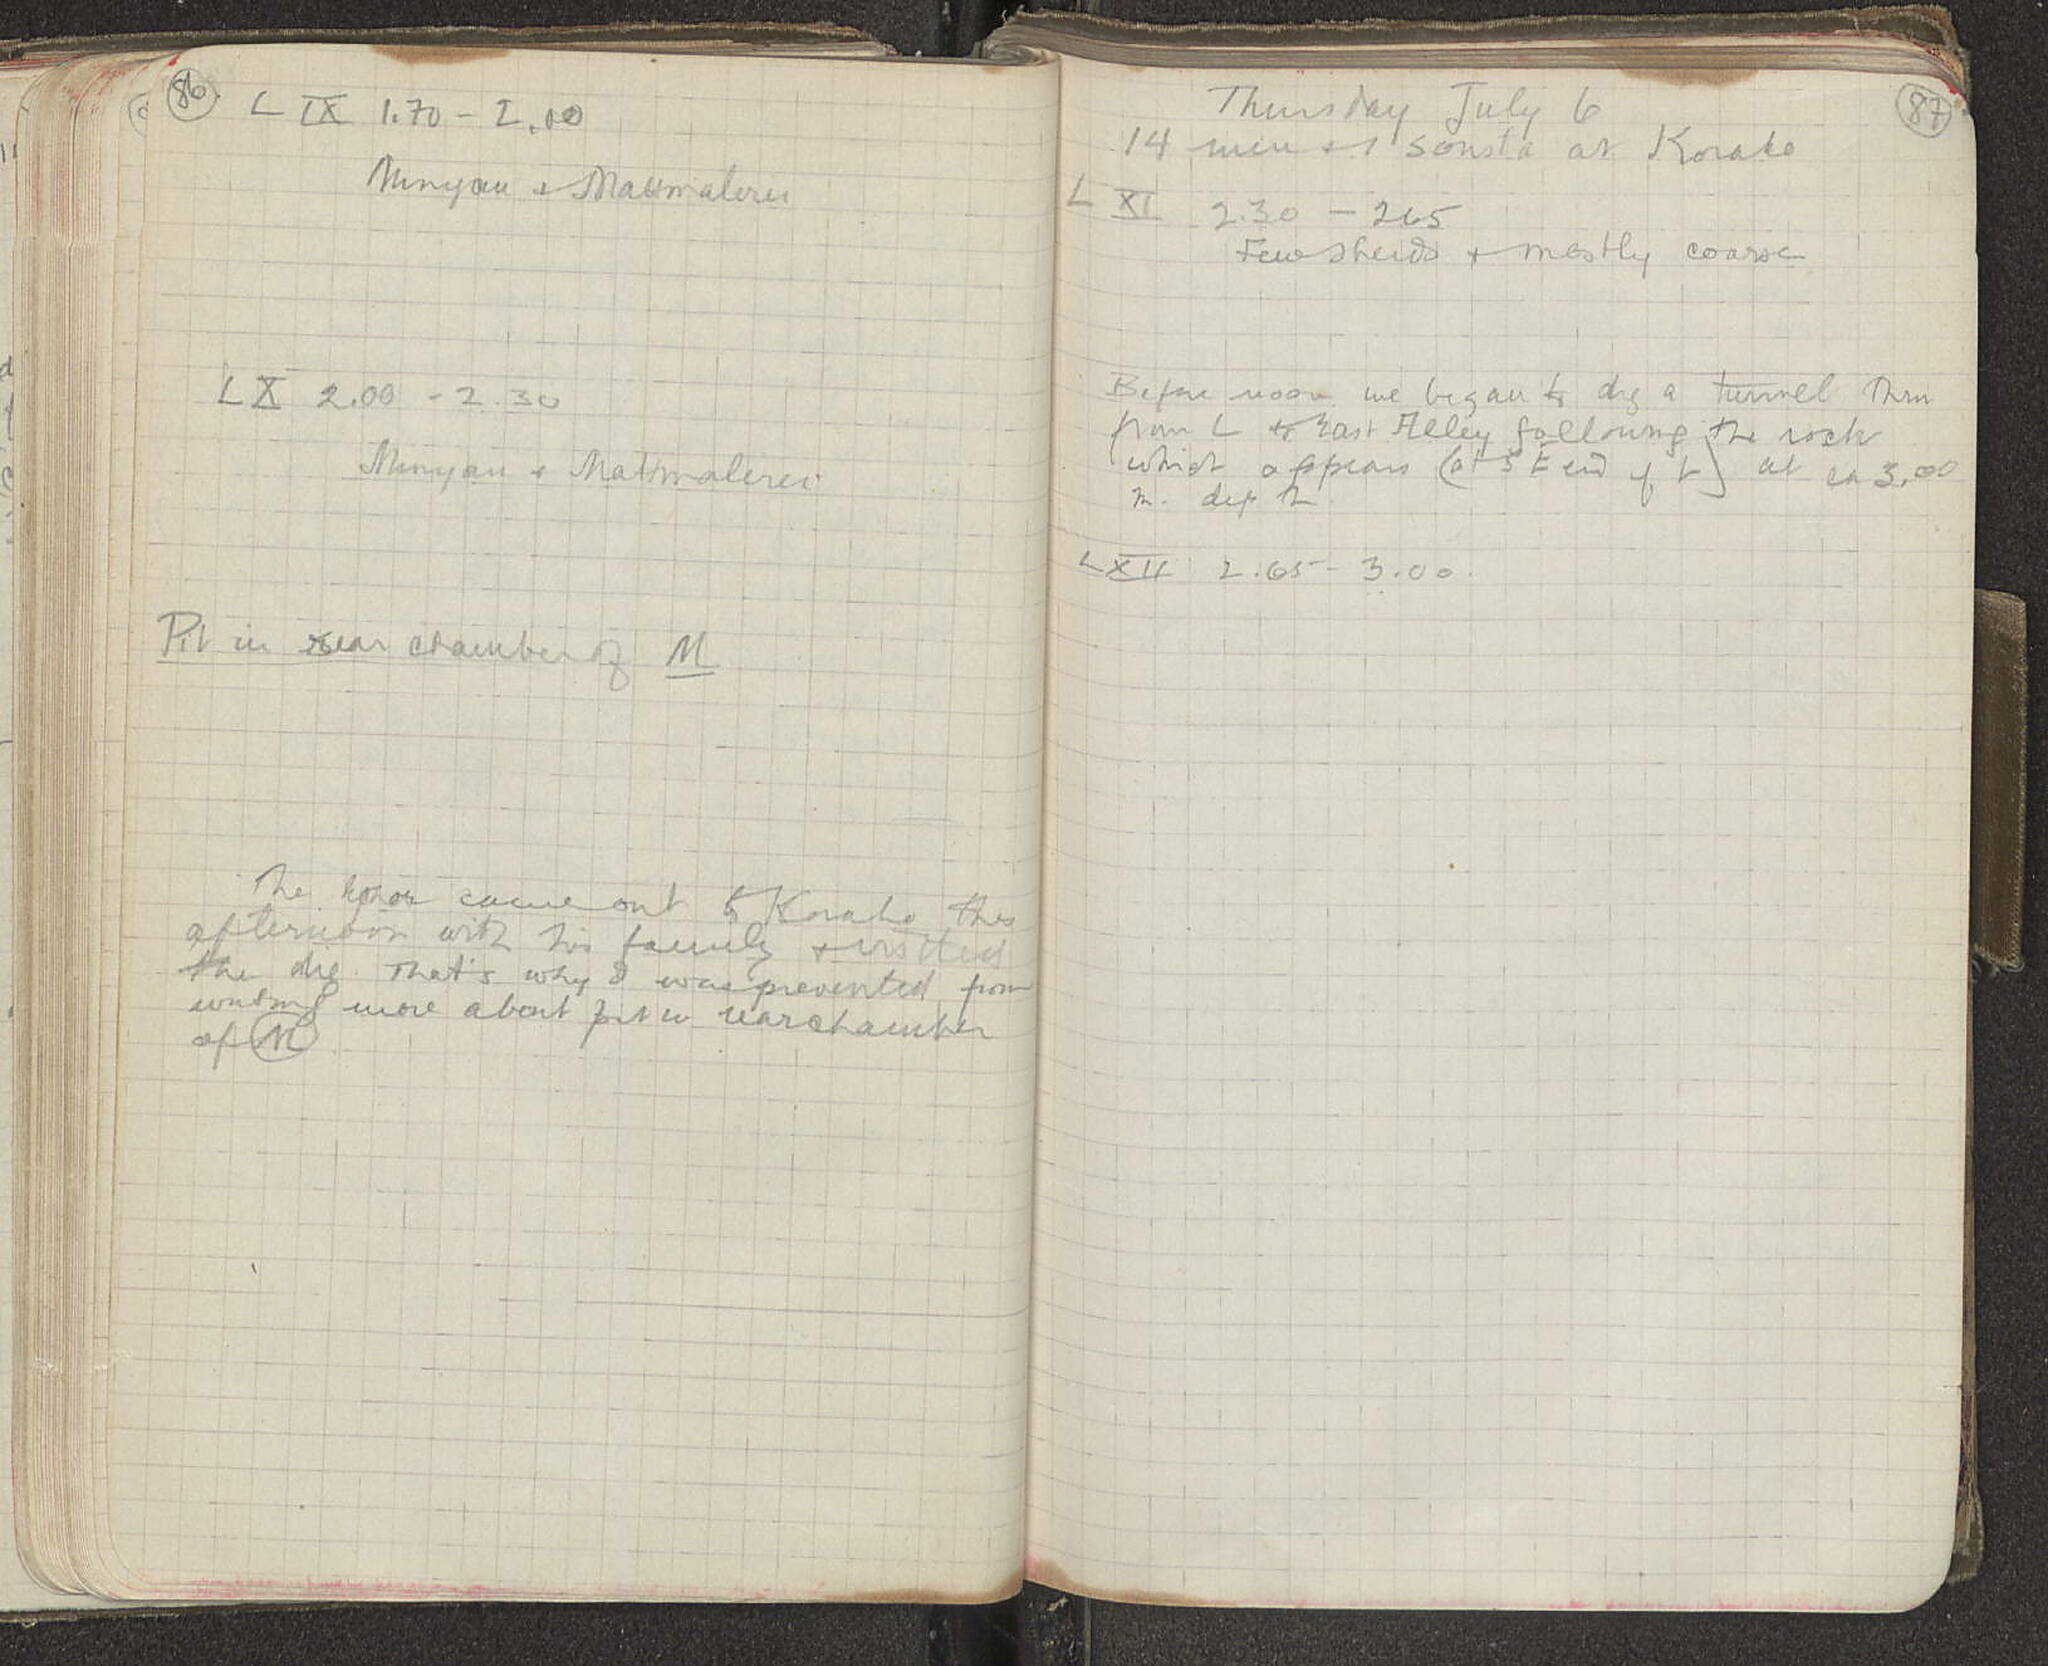 86
L IX 1.70 - 2.00
Minyan + Mattmalerei
L X 2.00 - 2.30
Minyan + Mattmalerei
Pit in rear chamber of M
The came out to Korako this
afternoon with his family + visited
the dig. That's why I was prevented from
writing more about pit in rear chamber
of M
87
Thursday July 6
14 men + 1 sousta at Korako
L XI 2.30 - 265
Few sherds + mostly coarse
Before noon we began to dig a tunnel thru
from L to East Alley following the rock
which appears (at S E end of L) at ca 3.00
m. depth
L XII 2.65 - 3.00.